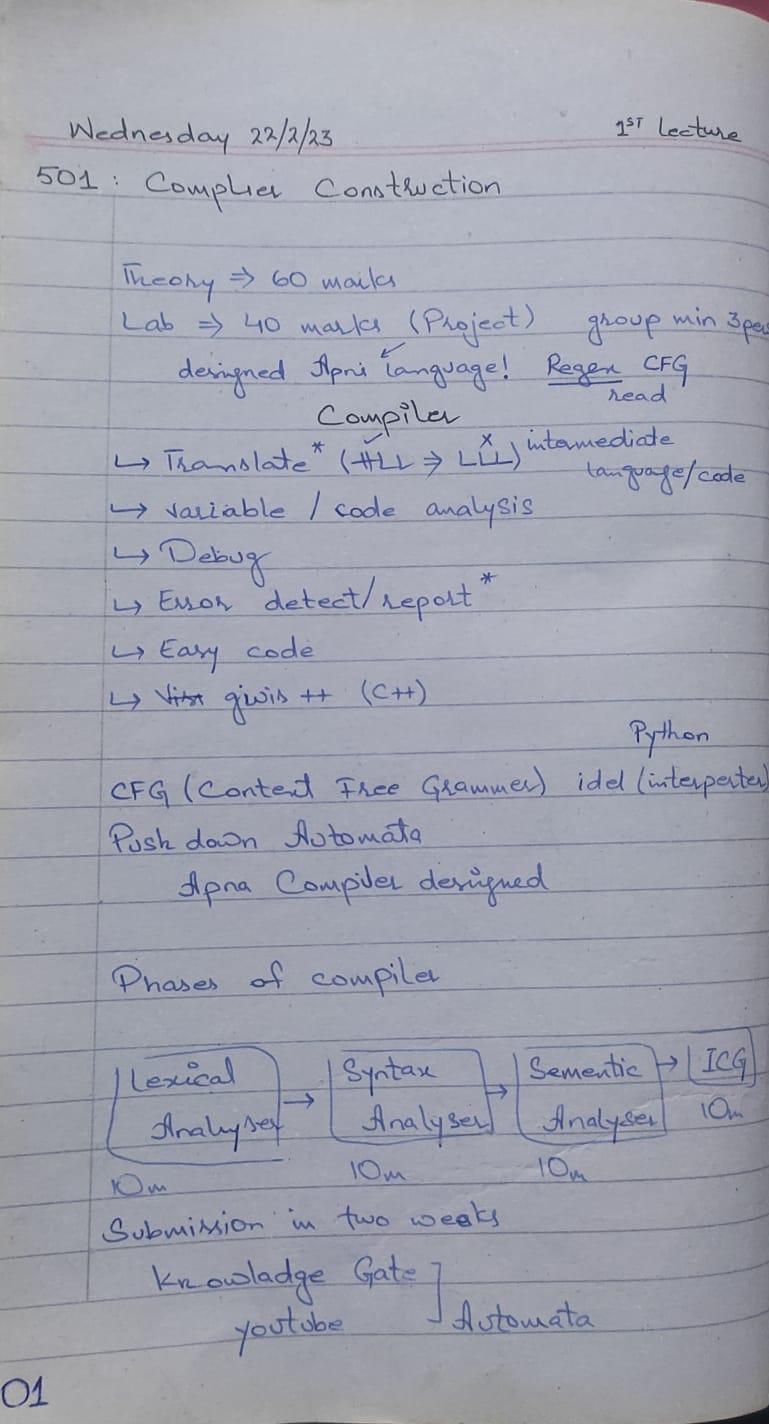 Wednesday 22/2/23 1ST lecture
501 : Complier Construction
Theory ⇒ 60 marks
Lab ⇒ 40 marks (Project) group min 3
designed Apni language! Regex CFG
read
Compiler
↳ Translate* (HLL ⇒ LLL) intermediate
language/code
↳ variable / code analysis
↳ Debug
↳ Error detect/report*
↳ Easy code
↳ ++ (C++)
Python
CFG (Context Free Grammer) idel (interperter)
Push down Automata
Apna Compiler designed
Phases of compiler
Lexical Syntax Sementic → ICG
Analyser → Analyser → Analyser 10m
10m 10m 10m
Submission in two weeks
Knowladge Gate
youtube Automata
01